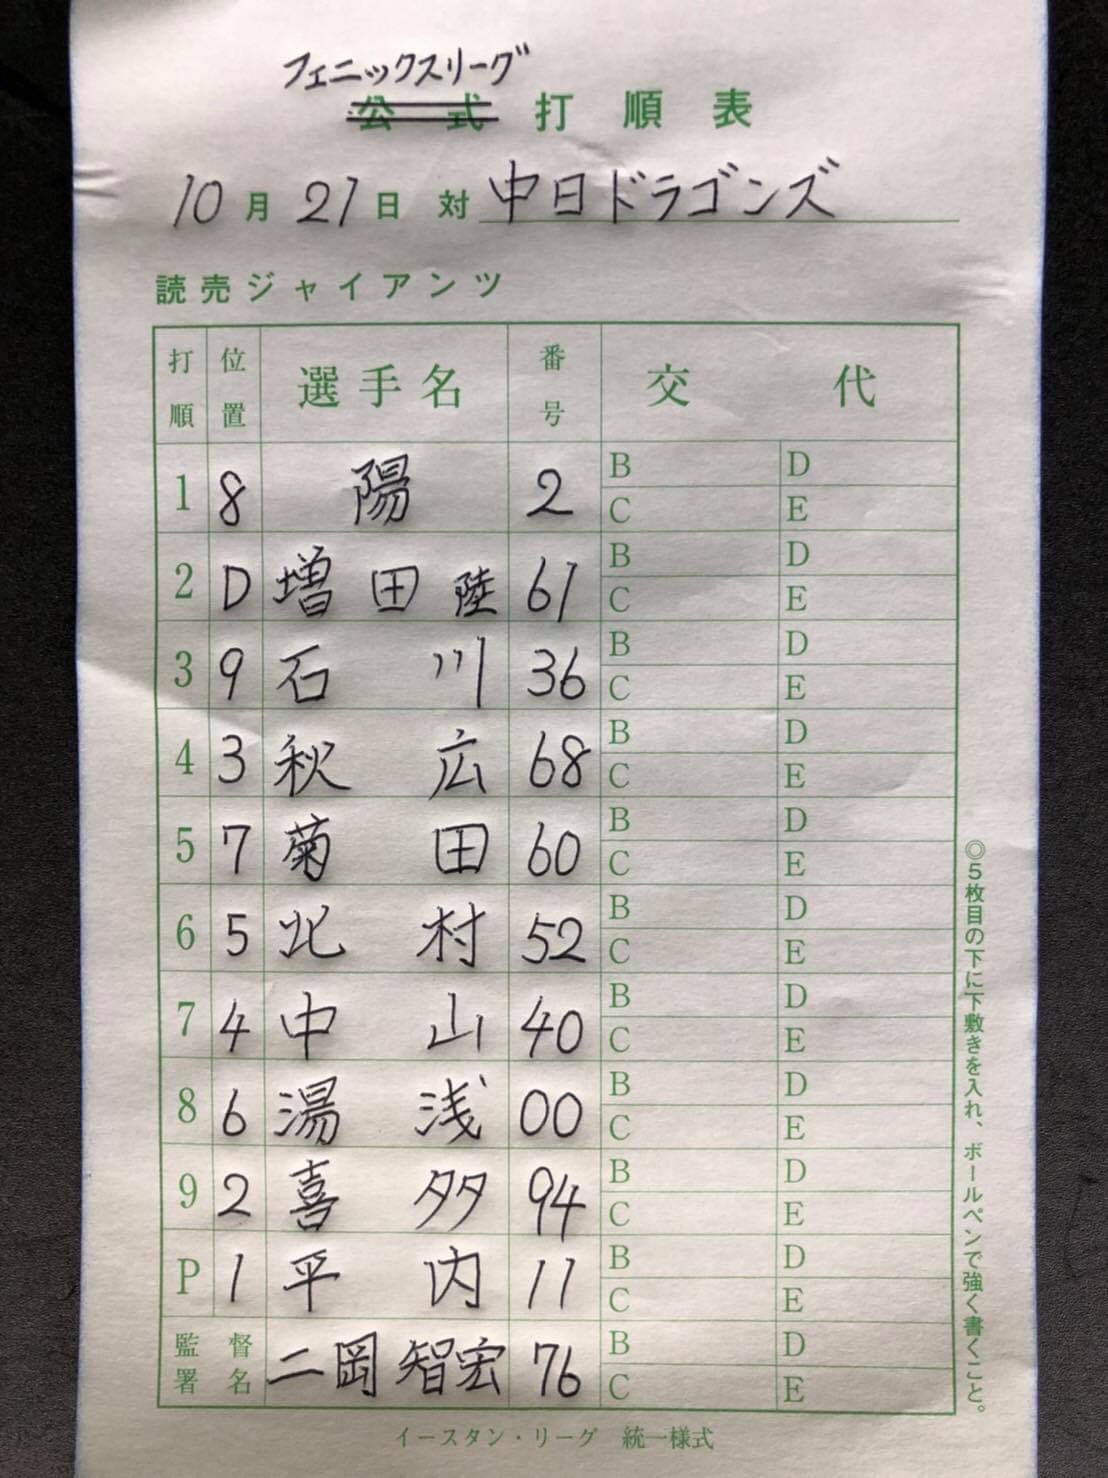 フェニックスリーグ
公式打順表
10月21日 対 中日ドラゴンズ
読売ジャイアンツ
打順 位置 選手名 番号 交代
1 8 陽 2 B D
C E
2 D 増田陸 61 B D
C E
3 9 石川 36 B D
C E
4 3 秋広 68 B D
C E
5 7 菊田 60 B D
C E
6 5 北村 52 B D
C E
7 4 中山 40 B D
C E
8 6 湯浅 00 B D
C E
9 2 喜多 94 B D
C E
P 1 平内 11 B D
C E
監督署名 二岡智宏 76 B D
C E
◎5枚目の下に下敷きを入れ、ボールペンで強く書くこと。
イースタン・リーグ 統一様式